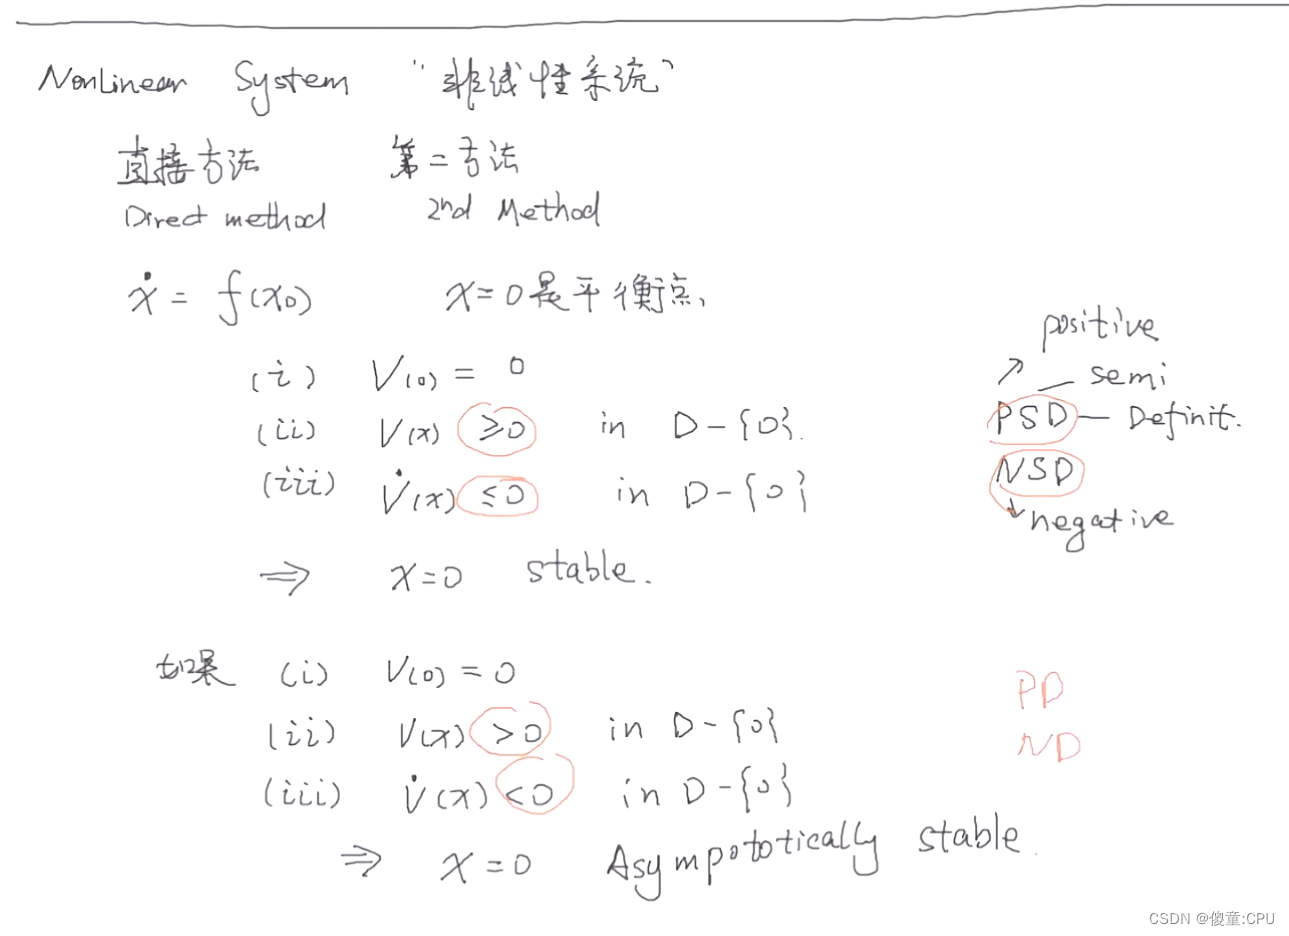 NonLinear System "非线性系统"
直接方法 第二方法
Direct method 2nd Method
ẋ = f(x0) x=0是平衡点、
(i) V(0) = 0
(ii) V(x) ≥0 in D-{0}.
(iii) V̇(x) ≤0 in D-{0}
⇒ x=0 stable.
positive
semi
PSD — Definit.
NSD
negative
如果 (i) V(0) = 0
(ii) V(x) >0 in D-{0}
(iii) V̇(x) <0 in D-{0}
⇒ x=0 Asympototically stable.
PD
ND
CSDN @傻童:CPU